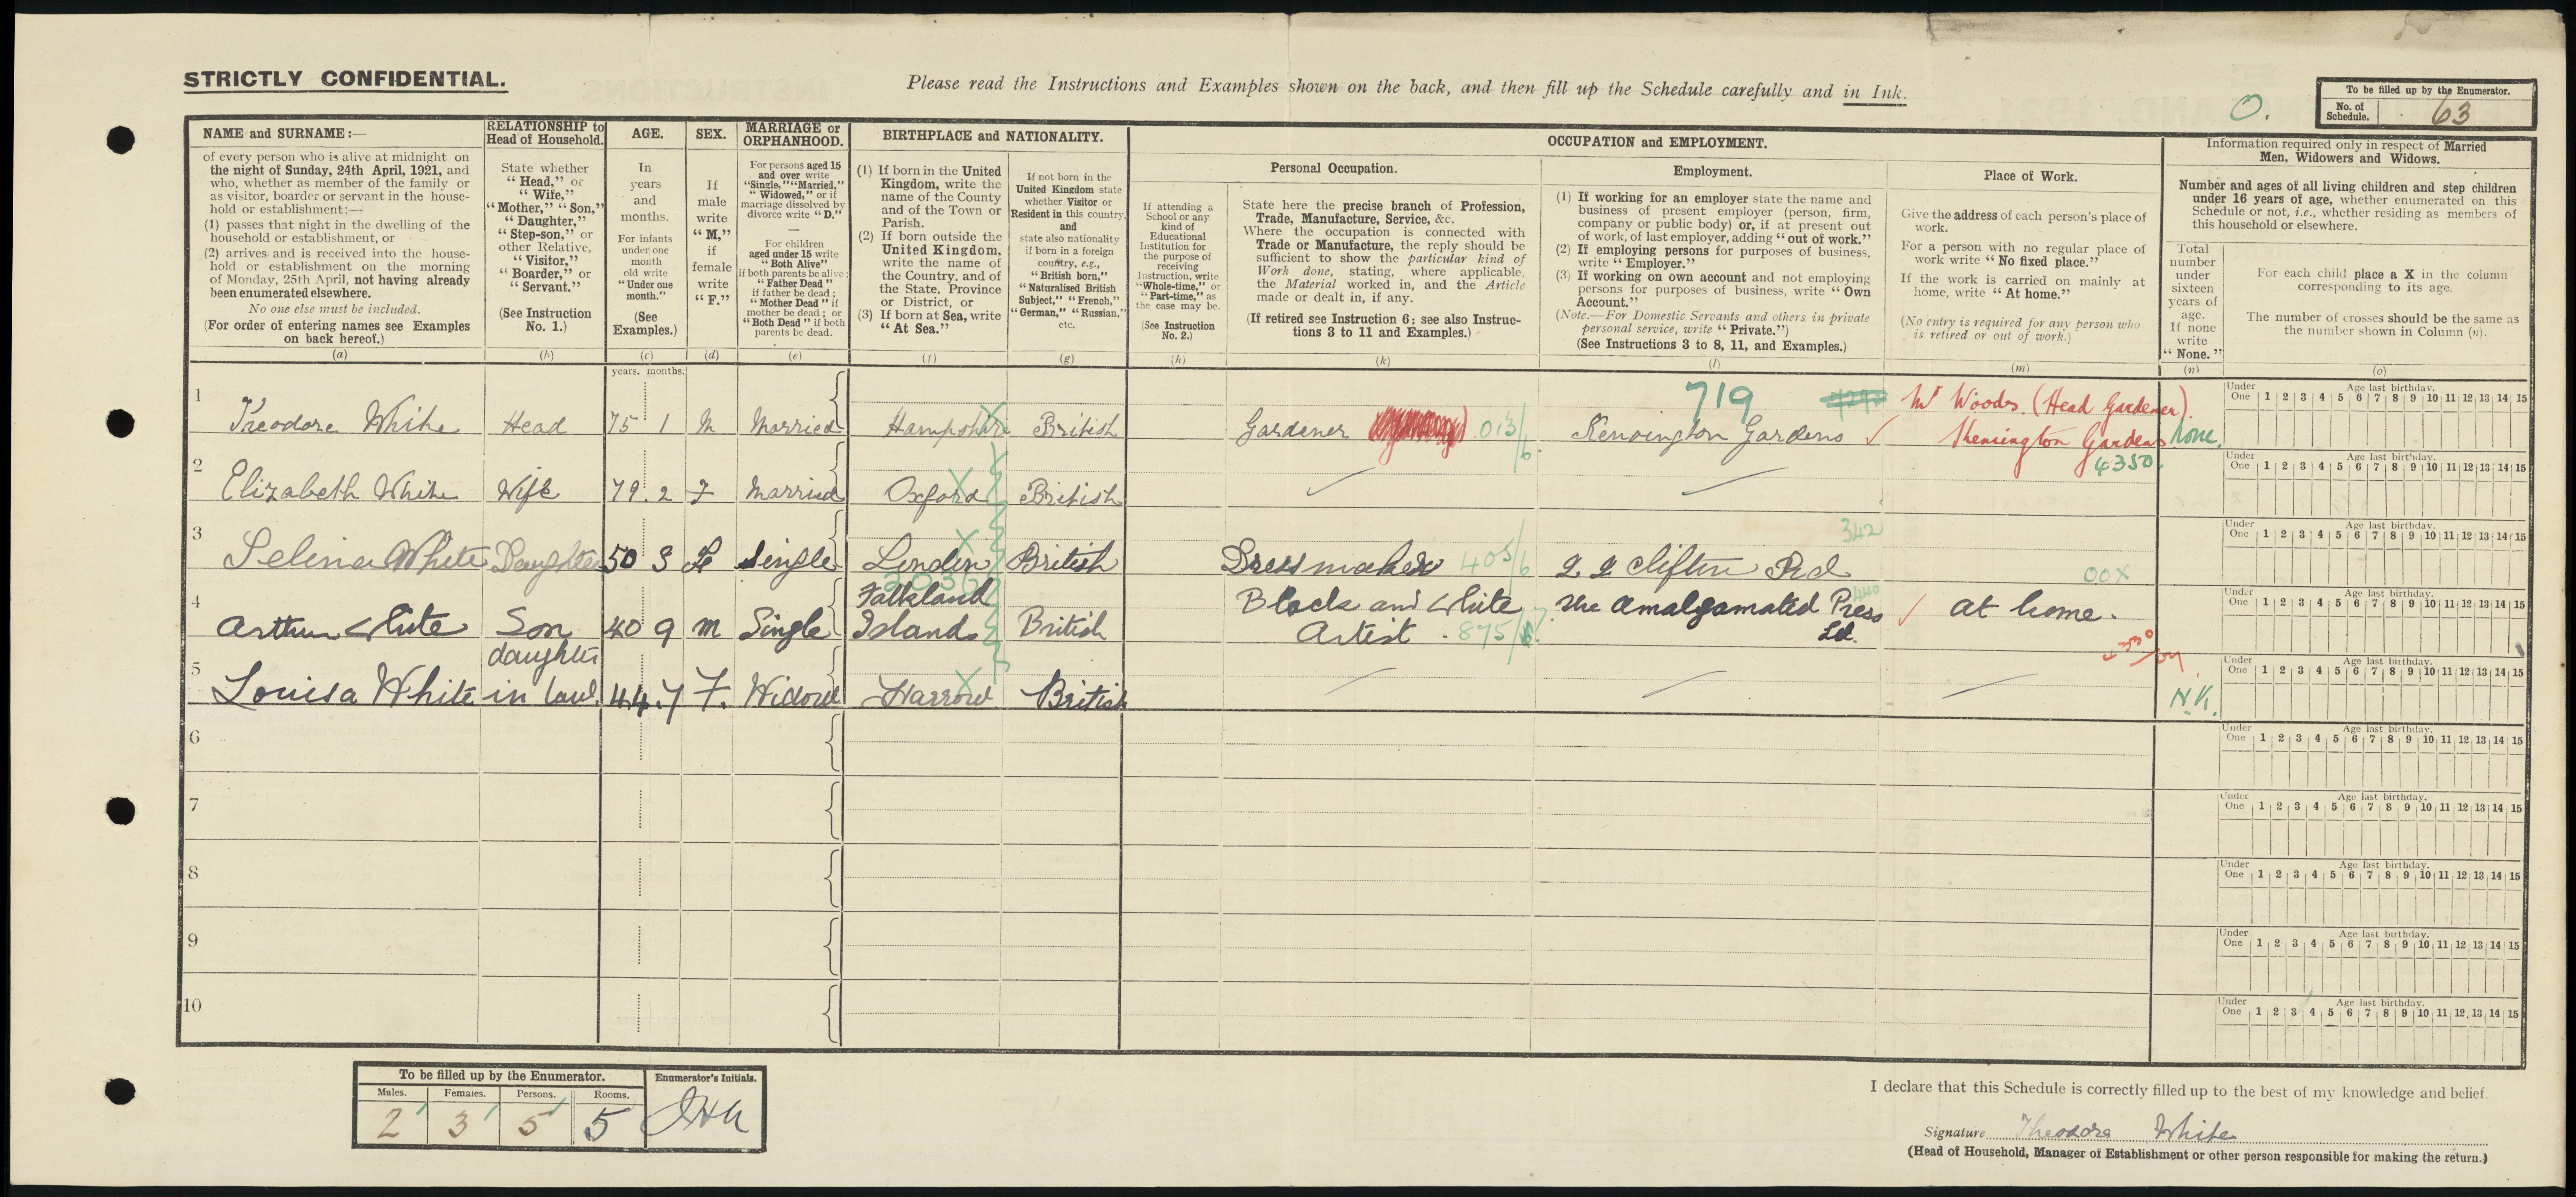 STRICTLY CONFIDENTIAL.
Please read the Instructions and Examples shown on the back, and then fill up the Schedule carefully and in Ink.
O.
To be filled up by the Enumerator.
No. of Schedule. 63
NAME and SURNAME:—
of every person who is alive at midnight on
the night of Sunday, 24th April, 1921, and
who, whether as member of the family or
as visitor, boarder or servant in the house-
hold or establishment:—
(1) passes that night in the dwelling of the
household or establishment, or
(2) arrives and is received into the house-
hold or establishment on the morning
of Monday, 25th April, not having already
been enumerated elsewhere.
No one else must be included.
(For order of entering names see Examples
on back hereof.)
(a)
RELATIONSHIP to
Head of Household.
State whether
"Head," or
"Wife,"
"Mother," "Son,"
"Daughter,"
"Step-son," or
other Relative,
"Visitor,"
"Boarder," or
"Servant."
(See Instruction
No. 1.)
(b)
AGE.
In
years
and
months.
For infants
under one
month
old write
"Under one
month."
(See
Examples.)
(c)
SEX.
If
male
write
"M,"
if
female
write
"F."
(d)
MARRIAGE or
ORPHANHOOD.
For persons aged 15
and over write
"Single," "Married,"
"Widowed," or if
marriage dissolved by
divorce write "D."
—
For children
aged under 15 write
"Both Alive"
if both parents be alive;
"Father Dead"
if father be dead;
"Mother Dead" if
mother be dead; or
"Both Dead" if both
parents be dead.
(e)
BIRTHPLACE and NATIONALITY.
(1) If born in the United
Kingdom, write the
name of the County
and of the Town or
Parish.
(2) If born outside the
United Kingdom,
write the name of
the Country, and of
the State, Province
or District, or
(3) If born at Sea, write
"At Sea."
(f)
If not born in the
United Kingdom state
whether Visitor or
Resident in this country,
and
state also nationality
if born in a foreign
country, e.g.,
"British born,"
"Naturalised British
Subject," "French,"
"German," "Russian,"
etc.
(g)
OCCUPATION and EMPLOYMENT.
If attending a
School or any
kind of
Educational
Institution for
the purpose of
receiving
Instruction, write
"Whole-time," or
"Part-time," as
the case may be.
(See Instruction
No. 2.)
(h)
Personal Occupation.
State here the precise branch of Profession,
Trade, Manufacture, Service, &c.
Where the occupation is connected with
Trade or Manufacture, the reply should be
sufficient to show the particular kind of
Work done, stating, where applicable,
the Material worked in, and the Article
made or dealt in, if any.
(If retired see Instruction 6; see also Instruc-
tions 3 to 11 and Examples.)
(k)
Employment.
(1) If working for an employer state the name and
business of present employer (person, firm,
company or public body) or, if at present out
of work, of last employer, adding "out of work."
(2) If employing persons for purposes of business,
write "Employer."
(3) If working on own account and not employing
persons for purposes of business, write "Own
Account."
(Note.—For Domestic Servants and others in private
personal service, write "Private.")
(See Instructions 3 to 8, 11, and Examples.)
(l)
Place of Work.
Give the address of each person's place of
work.
For a person with no regular place of
work write "No fixed place."
If the work is carried on mainly at
home, write "At home."
(No entry is required for any person who
is retired or out of work.)
(m)
Information required only in respect of Married
Men, Widowers and Widows.
Number and ages of all living children and step children
under 16 years of age, whether enumerated on this
Schedule or not, i.e., whether residing as members of
this household or elsewhere.
Total
number
under
sixteen
years of
age.
If none
write
"None."
(n)
For each child place a X in the column
corresponding to its age.
The number of crosses should be the same as
the number shown in Column (n).
(o)
years. months.
719
Mr Woods. (Head Gardener).
1 Theodore White Head 75 1 M Married Hampshire British Gardener 013/6 Kensington Gardens Kensington Gardens none.
4350.
Under One 1 2 3 4 5 6 7 8 9 10 11 12 13 14 15
Age last birthday.
2 Elizabeth White Wife 79. 2 F Married Oxford British
Under One 1 2 3 4 5 6 7 8 9 10 11 12 13 14 15
Age last birthday.
342
3 Selina White Daughter 50 3 F Single London British Dressmaker 405/6 Clifton Rd 00X
Under One 1 2 3 4 5 6 7 8 9 10 11 12 13 14 15
Age last birthday.
4 Arthur White Son 40 9 M Single Falkland Islands British Black and White Artist. 875/ The Amalgamated Press Ld. at home.
Under One 1 2 3 4 5 6 7 8 9 10 11 12 13 14 15
Age last birthday.
5 Louisa White daughter in law. 44. 7 F. Widow Harrow British N.K.
Under One 1 2 3 4 5 6 7 8 9 10 11 12 13 14 15
Age last birthday.
6
Under One 1 2 3 4 5 6 7 8 9 10 11 12 13 14 15
Age last birthday.
7
Under One 1 2 3 4 5 6 7 8 9 10 11 12 13 14 15
Age last birthday.
8
Under One 1 2 3 4 5 6 7 8 9 10 11 12 13 14 15
Age last birthday.
9
Under One 1 2 3 4 5 6 7 8 9 10 11 12 13 14 15
Age last birthday.
10
Under One 1 2 3 4 5 6 7 8 9 10 11 12 13 14 15
Age last birthday.
To be filled up by the Enumerator.
Males. Females. Persons. Rooms.
2 3 5 5
Enumerator's Initials.
I declare that this Schedule is correctly filled up to the best of my knowledge and belief.
Signature Theodore White
(Head of Household, Manager of Establishment or other person responsible for making the return.)